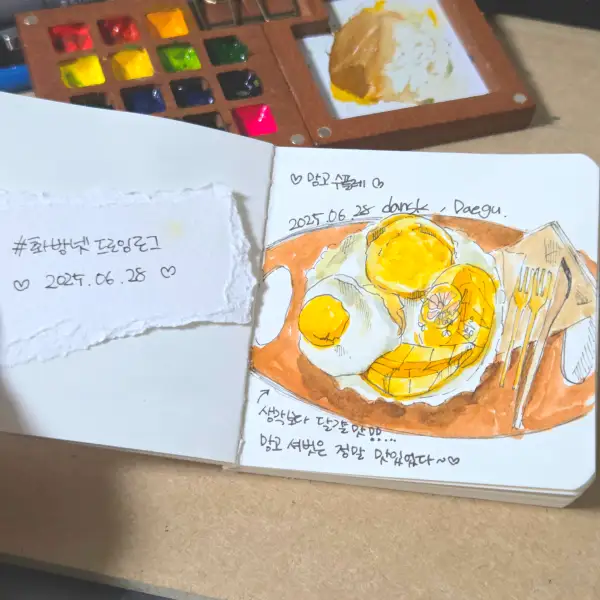 #화방넷 드로잉로그
♡ 2025.06.28 ♡
♡ 망고 수플레 ♡
2025.06.28 dansk, Daegu.
생각보다 달걀맛 뿜....
망고 셔벗은 정말 맛있었다~♡